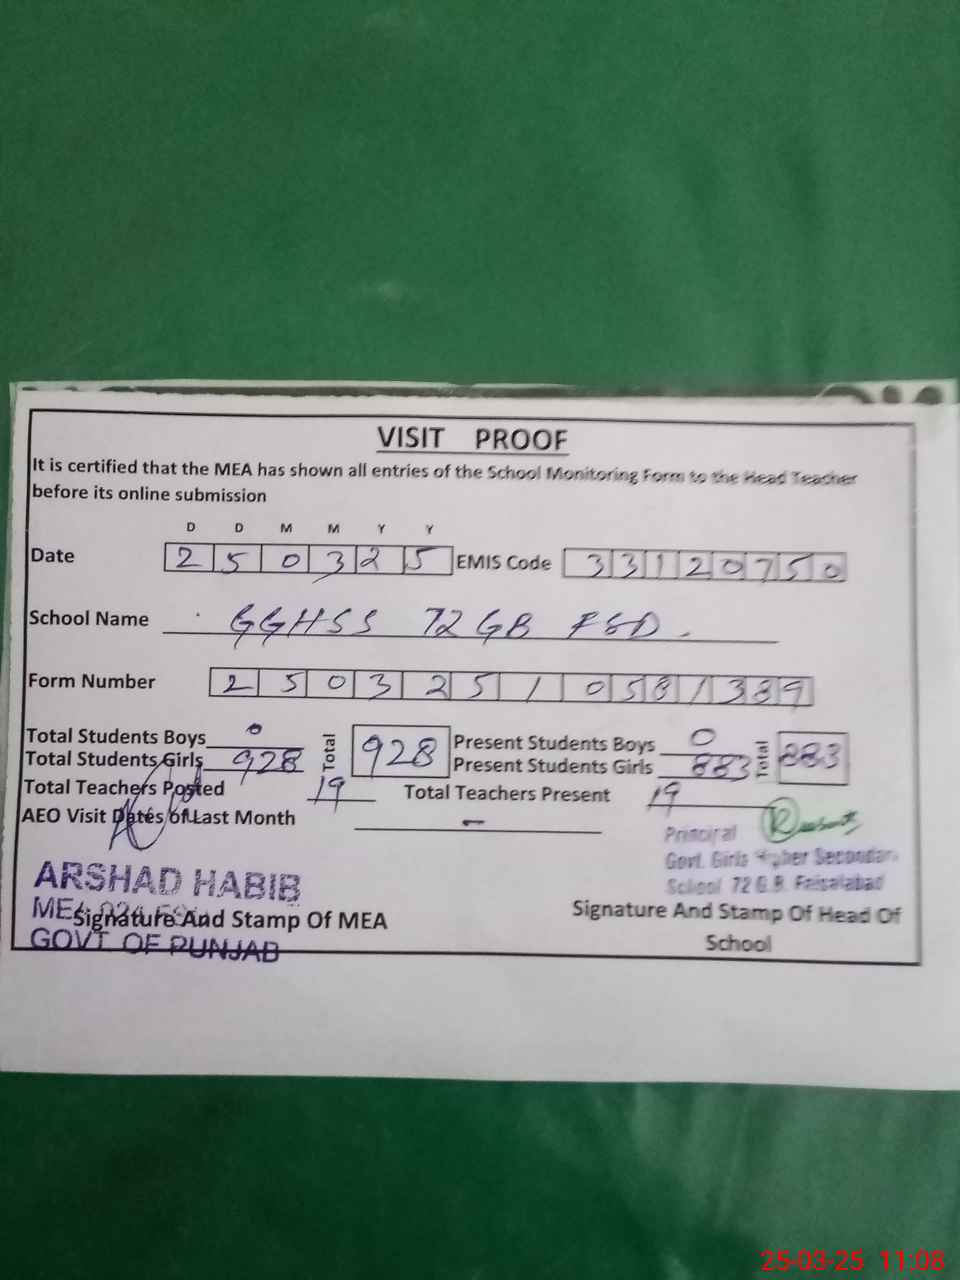 VISIT PROOF
It is certified that the MEA has shown all entries of the School Monitoring Form to the Head Teacher
before its online submission
D D M M Y Y
Date 2 5 0 3 2 5 EMIS Code 3 3 1 2 0 7 5 0
School Name GGHSS 72 GB FSD.
Form Number 2 5 0 3 2 5 1 0 5 8 1 3 8 9
Total Students Boys 0 Total 928 Present Students Boys 0 Total 883
Total Students Girls 928 Present Students Girls 883
Total Teachers Posted 19 Total Teachers Present 19
AEO Visit Dates of Last Month -
Principal
Govt. Girls Higher Secondary
School 72 G.B. Faisalabad
ARSHAD HABIB
MEA
Signature And Stamp Of MEA
GOVT OF PUNJAB
Signature And Stamp Of Head Of
School
25-03-25 11:08